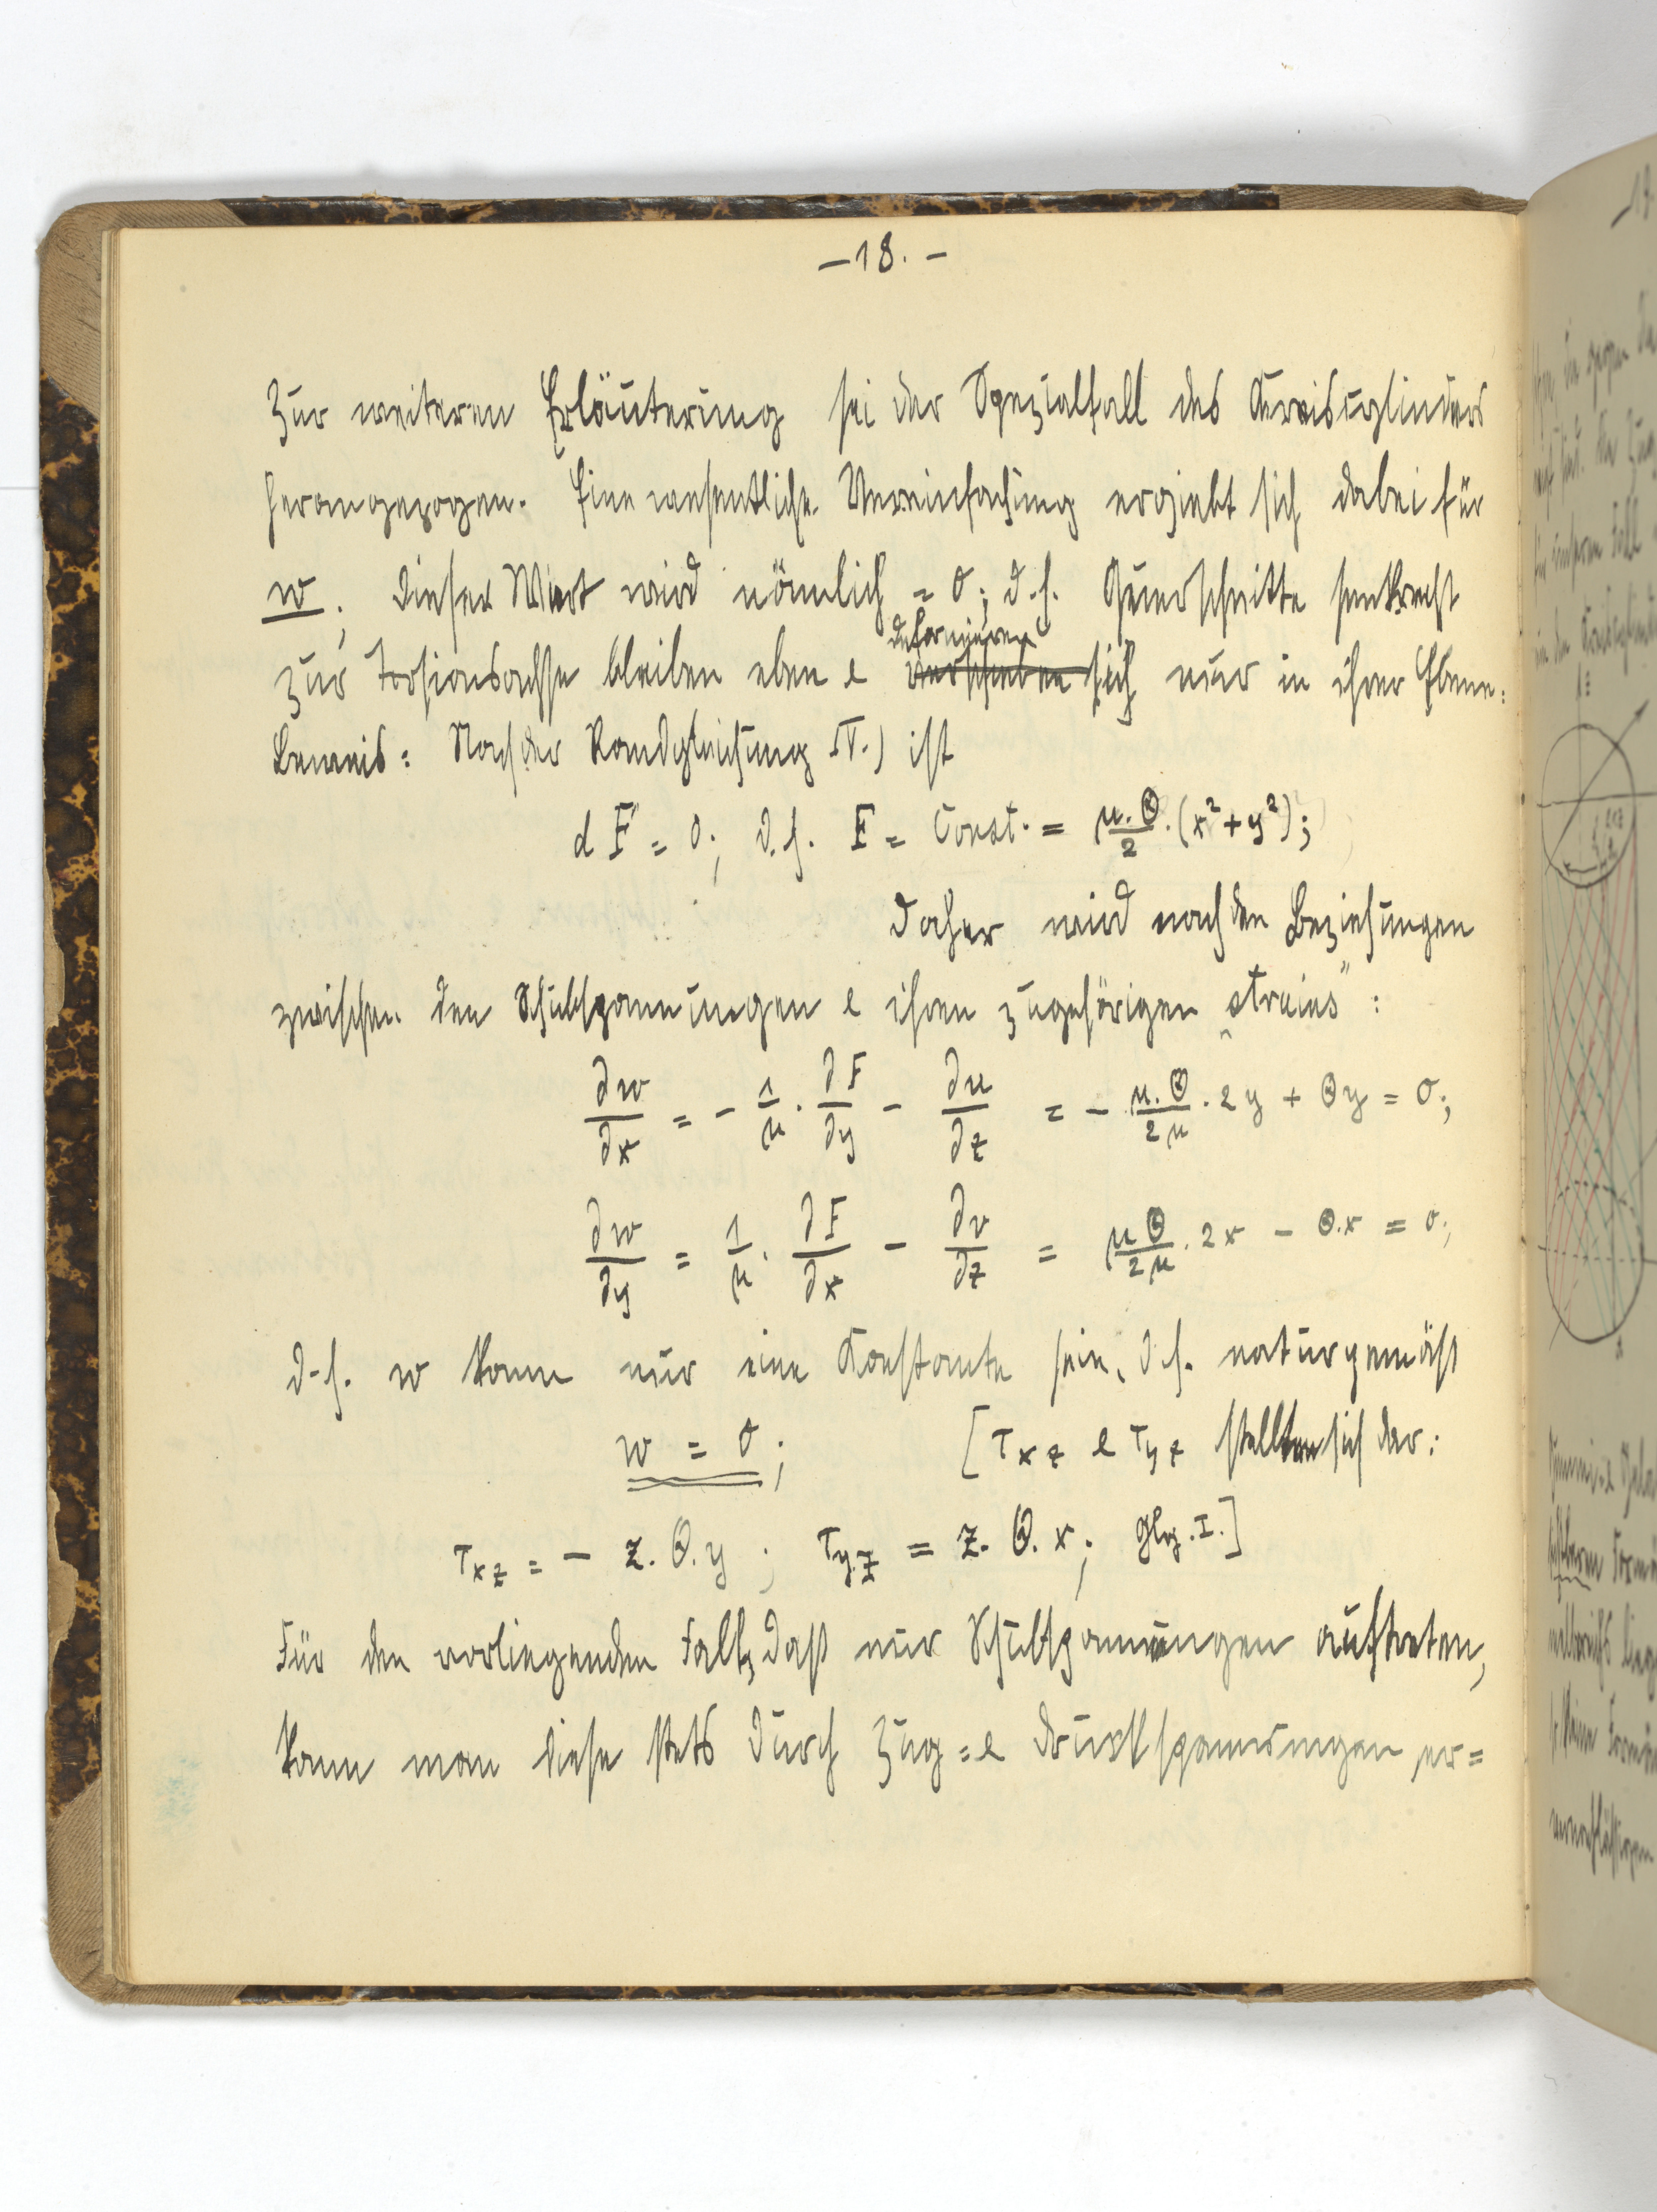 – 18. –
Zur weiteren Erläuterung sei der Spezialfall des Kreiscylinders
herangezogen. Eine wesentliche Vereinfachung ergiebt sich dabei für
w. Dieser Wert wird nämlich = 0; d.h. Querschnitte senkrecht
deformieren
zur Torsionsachse bleiben eben & verschieben sich nur in ihrer Ebene.
Beweis: Nach der Randgleichung IV.) ist
dF = 0; d.h. F = Const. = μ.Θ/2 . (x² + y²);
Daher wird nach den Beziehungen
zwischen den Schubspannungen & ihren zugehörigen „strains“:
∂w/∂x = – 1/μ . ∂F/∂y – ∂u/∂z = – μ.Θ/2μ . 2y + Θy = 0;
∂w/∂y = 1/μ . ∂F/∂x – ∂v/∂z = μΘ/2μ . 2x – Θ.x = 0;
d.h. w kann nur eine Konstante sein, d.h. naturgemäß
w = 0; [τxz & τyz stellten sich dar:
τxz = – z.Θ.y; τyz = z.Θ.x; Glg. I.]
Für den vorliegenden Fall, daß nur Schubspannungen auftreten,
kann man diese stets durch Zug = & Druckspannungen er=